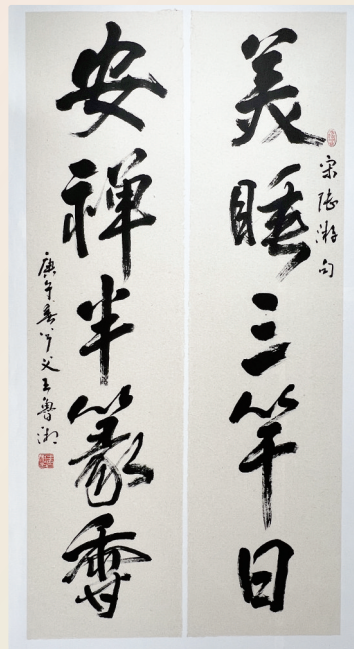 美睡三竿日
宋陸游句
安禪半篆香
庚午春 父王魯湘